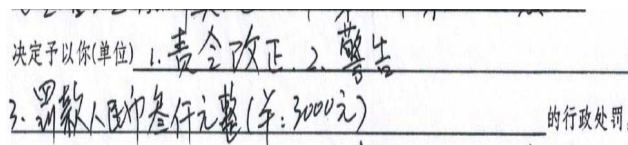 决定予以你(单位) 1.责令改正.2.警告
3.罚款人民币叁仟元整(羊:3000元) 的行政处罚,